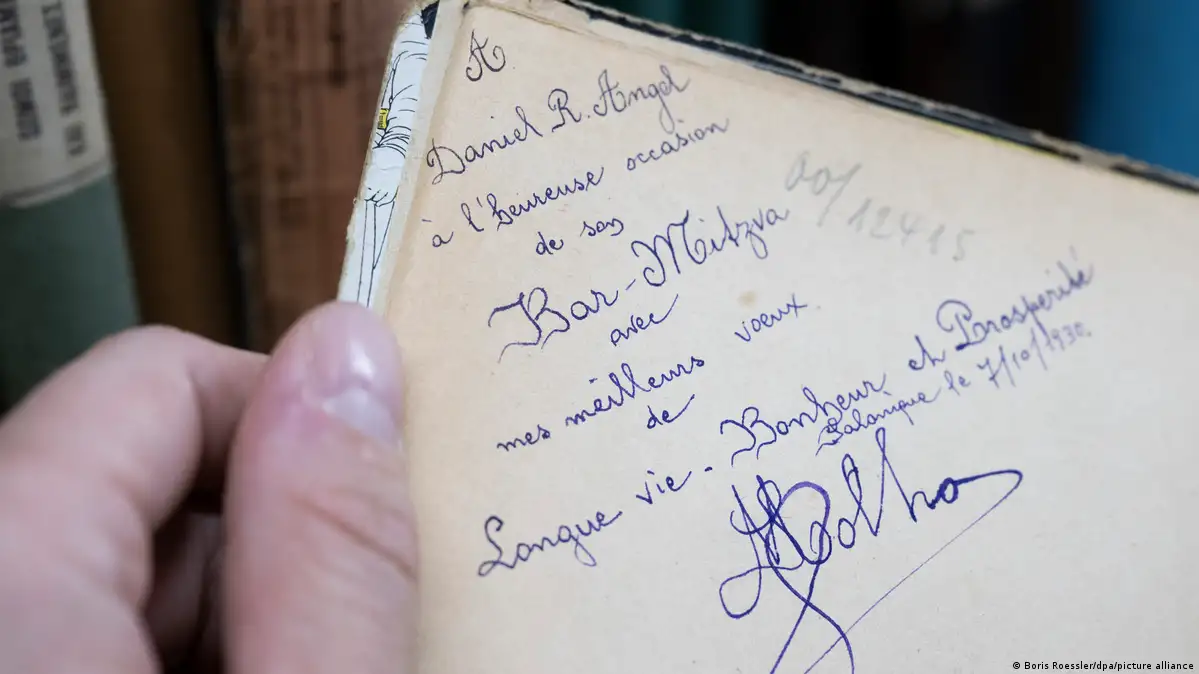 A
Daniel R. Angel
à l'heureuse occasion
de son
Bar-Mitzva
avec
mes méilleurs voeux.
de
Longue vie - Bonheur et Prosperité
Salonique le 7/10/1930.
Molho
00/12415
© Boris Roessler/dpa/picture alliance